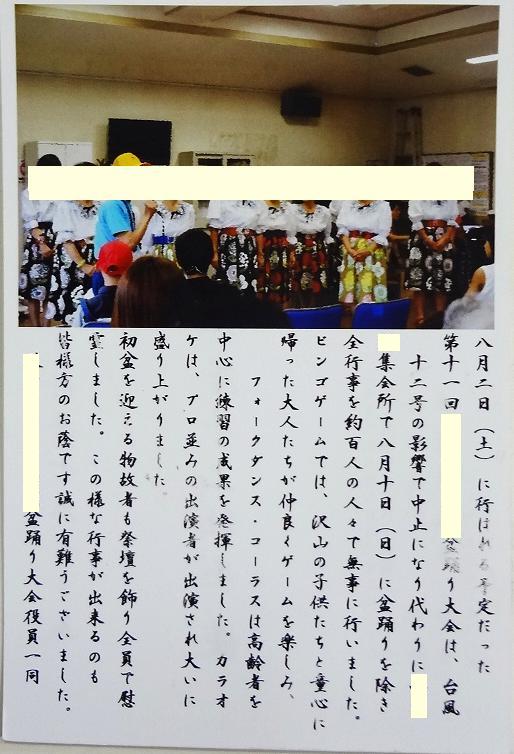 八月二日（土）に行はれる予定だった
第十一回 盆踊り大会は、台風
十二号の影響で中止になり代わりに
集会所で八月十日（日）に盆踊りを除き
全行事を約百人の人々で無事に行いました。
ビンゴゲームでは、沢山の子供たちと童心に
帰った大人たちが仲良くゲームを楽しみ、
フォークダンス・コーラスは高齢者を
中心に練習の成果を発揮しました。カラオ
ケは、プロ並みの出演者が出演され大いに
盛り上がりました。
初盆を迎える物故者も祭壇を飾り全員で慰
霊しました。この様な行事が出来るのも
皆様方のお蔭です誠に有難うございました。
盆踊り大会役員一同